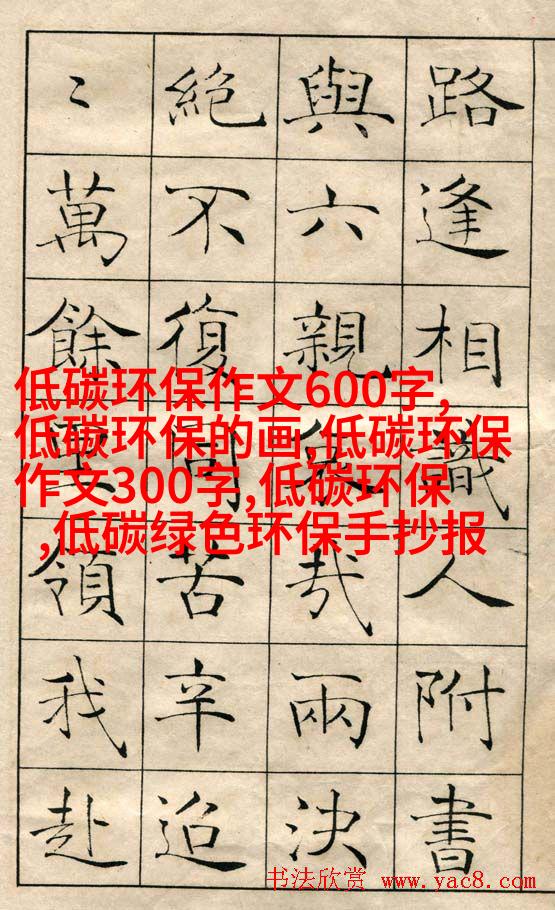 路逢相識人附書
與六親哀哉兩決
絕不復同苦辛迢
〻萬餘領我赴
低碳环保作文600字,
低碳环保的画,低碳环保
作文300字,低碳环保
,低碳绿色环保手抄报
书法欣赏 www.yac8.com